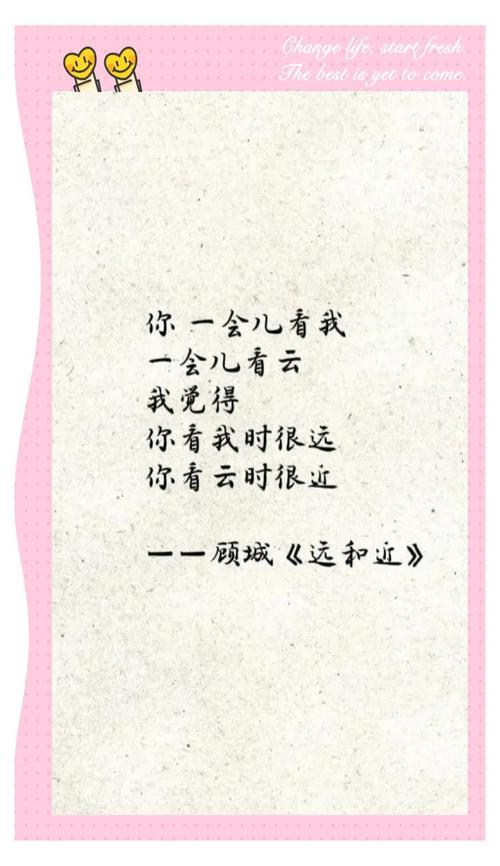 Change life, start fresh.
The best is yet to come.
你 一会儿看我
一会儿看云
我觉得
你看我时很远
你看云时很近
——顾城《远和近》